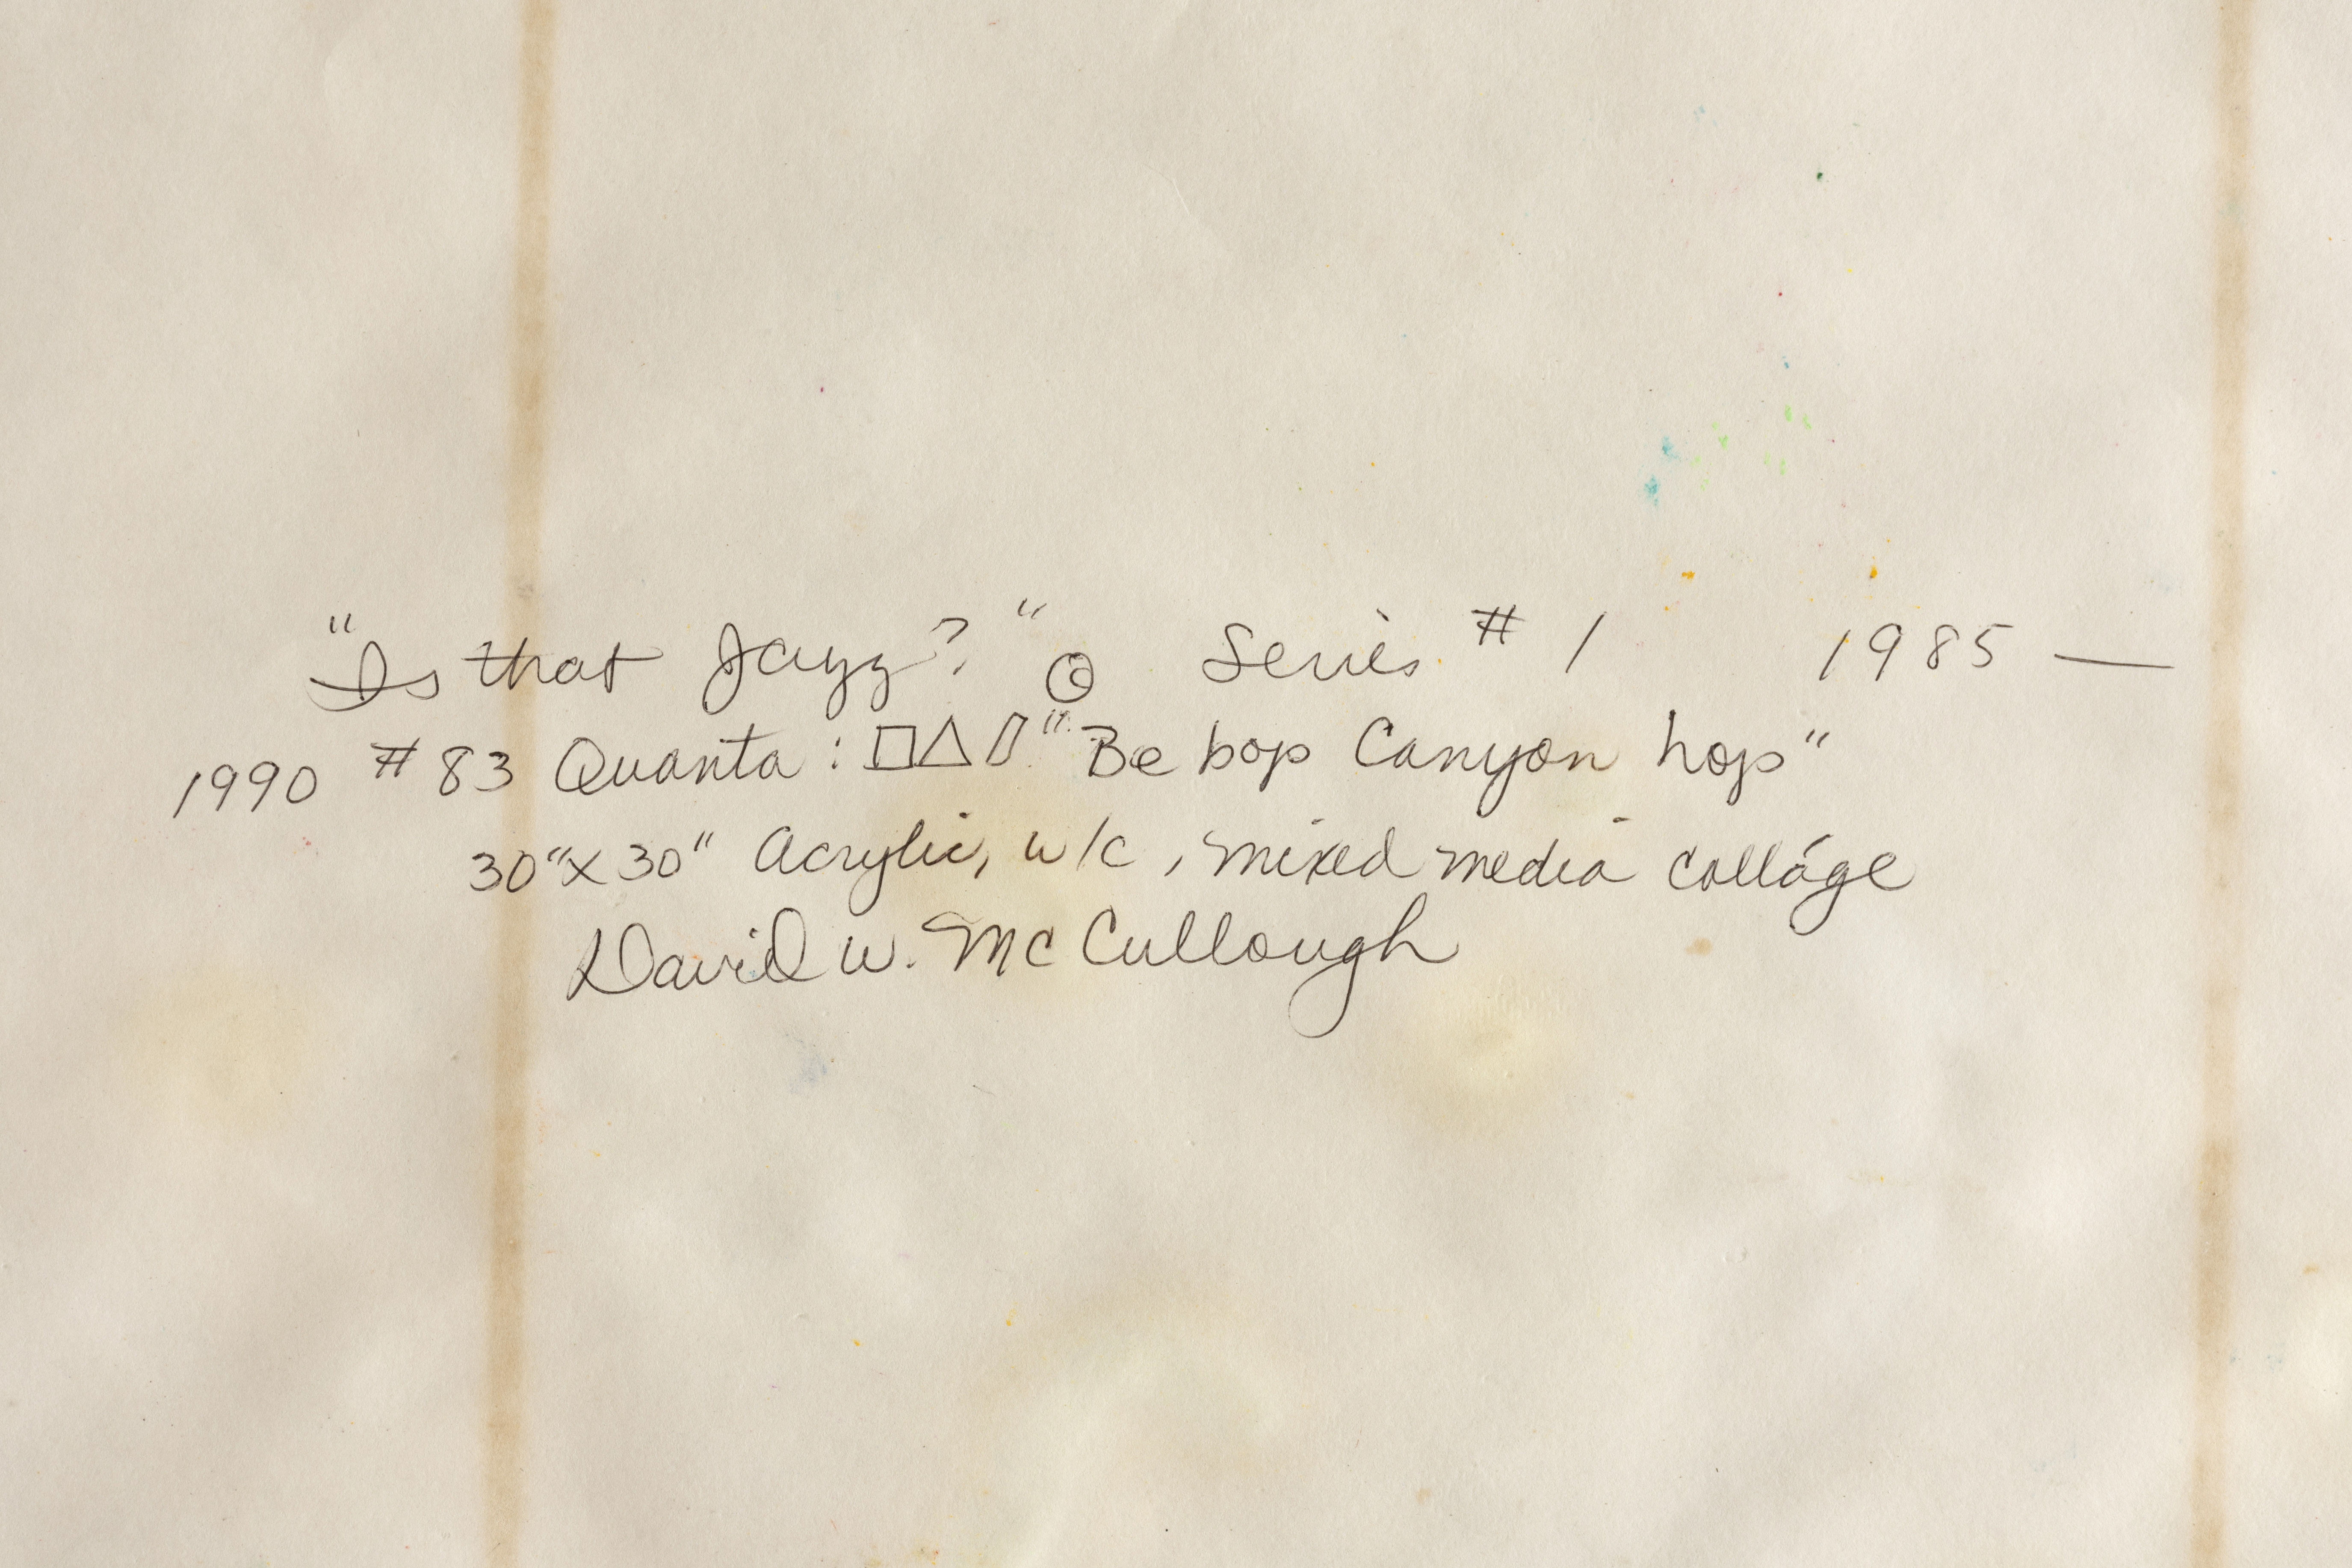 "Is that Jazz?" © Series # 1 1985 —
1990 # 83 Quanta : □△▱ "Be bop Canyon hop"
30"x 30" Acrylic, w/c , mixed media colláge
David W. McCullough